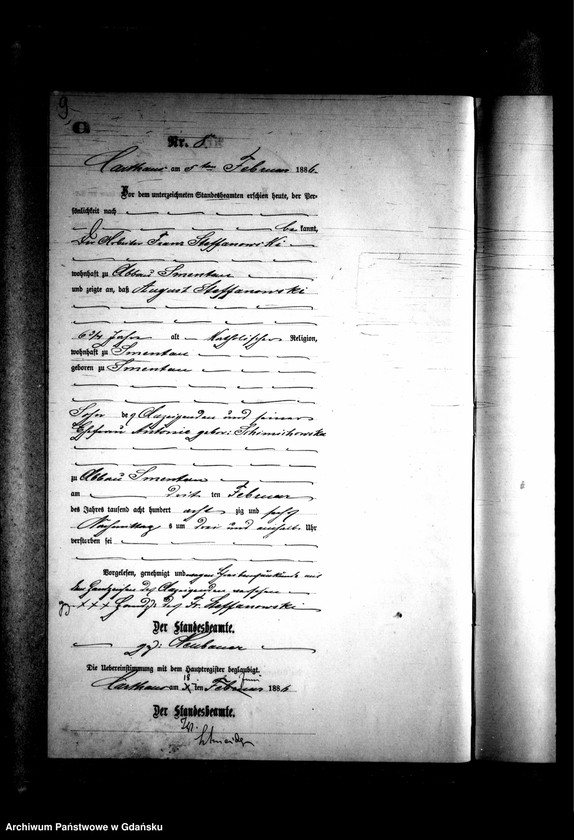 9
Nr. 8
Carthaus am 5ten Februar 1886.
Vor dem unterzeichneten Standesbeamten erschien heute, der Per-
sönlichkeit nach
be kannt,
Der Arbeiter Franz Steffanowski
wohnhaft zu Abbau Smentau
und zeigte an, daß August Steffanowski
6 3/4 Jahr alt Katholischer Religion,
wohnhaft zu Smentau
geboren zu Smentau
Sohn des Anzeigenden und seiner
Ehefrau Antonie gebor:
zu Abbau Smentau
am drit ten Februar
des Jahres tausend acht hundert acht zig und sechs
Nachmittags um drei und einhalb Uhr
verstorben sei
Vorgelesen, genehmigt und wegen Schreibensunkunde mit
den Handzeichen des Anzeigenden versehen
gz. +++ Handz: des Fr. Steffanowski
Der Standesbeamte.
gz: Neubauer
Die Uebereinstimmung mit dem Hauptregister beglaubigt.
Carthaus am 18 ten Juni 1886
Der Standesbeamte.
Archiwum Państwowe w Gdańsku